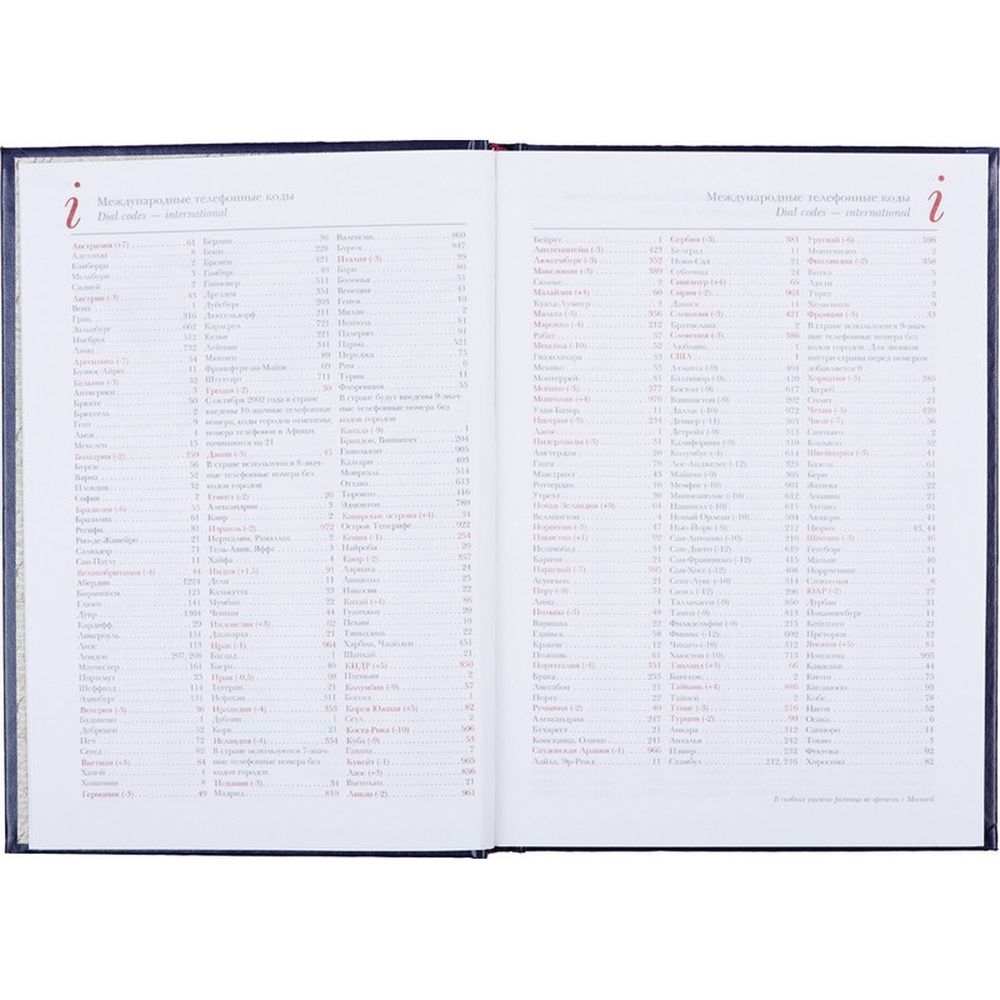 i
Международные телефонные коды
Dial codes — international
Австралия (+7) 61
Аделаида 8
Канберра 2
Мельбурн 3
Сидней 2
Австрия (-3) 43
Вена 1
Грац 316
Зальцбург 662
Инсбрук 512
Линц 732
Аргентина (-7) 54
Буэнос-Айрес 11
Бельгия (-3) 32
Антверпен 3
Брюгге 50
Брюссель 2
Гент 9
Льеж 4
Мехелен 15
Болгария (-2) 359
Бургас 56
Варна 52
Пловдив 32
София 2
Бразилия (-6) 55
Бразилиа 61
Ресифи 81
Рио-де-Жанейро 21
Салвадор 71
Сан-Паулу 11
Великобритания (-4) 44
Абердин 1224
Бирмингем 121
Глазго 141
Дувр 1304
Кардифф 29
Ливерпуль 151
Лидс 113
Лондон 207, 208
Манчестер 161
Портсмут 23
Шеффилд 114
Эдинбург 131
Венгрия (-3) 36
Будапешт 1
Дебрецен 52
Печ 72
Сегед 62
Вьетнам (+3) 84
Ханой 4
Хошимин 8
Германия (-3) 49
Берлин 30
Бонн 228
Бремен 421
Гамбург 40
Ганновер 511
Дрезден 351
Дуйсбург 203
Дюссельдорф 211
Карлсруэ 721
Кельн 221
Лейпциг 341
Мюнхен 89
Франкфурт-на-Майне 69
Штутгарт 711
Греция (-2) 30
С октября 2002 года в стране
введены 10-значные телефонные
номера, коды городов отменены;
номера телефонов в Афинах
начинаются на 21
Дания (-3) 45
В стране используются 8-знач-
ные телефонные номера без
кодов городов
Египет (-2) 20
Александрия 3
Каир 2
Израиль (-2) 972
Иерусалим, Рамаллах 2
Тель-Авив, Яффа 3
Хайфа 4
Индия (+1,5) 91
Дели 11
Калькутта 33
Мумбаи 22
Ченнаи 44
Индонезия (+3) 62
Джакарта 21
Ирак (-1) 964
Багдад 1
Басра 40
Иран (-0,5) 98
Тегеран 21
Исфахан 311
Ирландия (-4) 353
Дублин 1
Корк 21
Исландия (-4) 354
В стране используются 7-знач-
ные телефонные номера без
кодов городов
Испания (-3) 34
Мадрид 810
Валенсия 860
Бургос 847
Италия (-3) 39
Бари 80
Болонья 51
Венеция 41
Генуя 10
Милан 2
Неаполь 81
Палермо 91
Парма 521
Перуджа 75
Рим 6
Турин 11
Флоренция 55
В стране будут введены 9-знач-
ные телефонные номера без
кодов городов
Канада (-9) 1
Брандон, Виннипег 204
Гамильтон 905
Калгари 403
Монреаль 514
Оттава 613
Торонто 416
Эдмонтон 780
Канарские острова (+4) 34
Остров Тенерифе 922
Кения (-1) 254
Найроби 20
Кипр (-2) 357
Ларнака 24
Лимассол 25
Никосия 22
Китай (+4) 86
Гуанчжоу 20
Пекин 10
Тяньцзинь 22
Харбин, Чжаодун 451
Шанхай 21
КНДР (+5) 850
Пхеньян 2
Колумбия (-9) 57
Богота 1
Корея Южная (+5) 82
Сеул 2
Коста-Рика (-10) 506
Куба (-9) 53
Гавана 7
Кувейт (-1) 965
Лаос (+3) 856
Вьентьян 21
Ливан (-2) 961
Международные телефонные коды
Dial codes — international
i
Бейрут 1
Лихтенштейн (-3) 423
Люксембург (-3) 352
Македония (-3) 389
Скопье 2
Малайзия (+4) 60
Куала-Лумпур 3
Мальта (-3) 356
Марокко (-4) 212
Рабат 37
Мексика (-10) 52
Гвадалахара 33
Мехико 55
Монтеррей 81
Монако (-3) 377
Монголия (+4) 976
Улан-Батор 11
Нигерия (-3) 234
Лагос 1
Нидерланды (-3) 31
Амстердам 20
Гаага 70
Маастрихт 43
Роттердам 10
Утрехт 30
Новая Зеландия (+9) 64
Веллингтон 4
Норвегия (-3) 47
Пакистан (+1) 92
Исламабад 51
Карачи 21
Парагвай (-7) 595
Асунсьон 21
Перу (-9) 51
Лима 1
Польша (-3) 48
Варшава 22
Гданьск 58
Краков 12
Познань 61
Португалия (-4) 351
Брага 253
Лиссабон 21
Порту 22
Румыния (-2) 40
Александрия 247
Бухарест 21
Констанца, Олимп 241
Саудовская Аравия (-1) 966
Лайла, Эр-Рияд 11
Сербия (-3) 381
Белград 11
Нови-Сад 21
Суботица 24
Сингапур (+4) 65
Сирия (-2) 963
Дамаск 11
Словакия (-3) 421
Братислава 2
Словения (-3) 386
Любляна 1
США 1
Атланта (-9) 404
Балтимор (-9) 410
Бостон (-9) 617
Вашингтон (-9) 202
Даллас (-10) 972
Денвер (-11) 303
Детройт (-9) 313
Калифорния (-9) 310
Колумбус (-9) 614
Лос-Анджелес (-12) 323
Майами (-9) 305
Мемфис (-10) 901
Миннеаполис (-10) 612
Нашвилл (-10) 615
Новый Орлеан (-10) 504
Нью-Йорк (-9) 212
Сан-Антонио (-10) 210
Сан-Диего (-12) 619
Сан-Франциско (-12) 415
Сан-Хосе (-12) 408
Сент-Луис (-10) 314
Сиэтл (-12) 206
Таллахасси (-9) 850
Тампа (-9) 813
Филадельфия (-9) 215
Финикс (-12) 602
Чикаго (-10) 312
Хьюстон (-10) 713
Таиланд (+3) 66
Бангкок 2
Тайвань (+4) 886
Тайбей 2
Тунис (-3) 216
Турция (-2) 90
Анкара 312
Анталья 242
Измир 232
Стамбул 212, 216
Уругвай (-6) 598
Монтевидео 2
Финляндия (-2) 358
Котка 5
Лахти 3
Турку 2
Хельсинки 9
Франция (-3) 33
В стране используются 9-знач-
ные телефонные номера без
кодов городов. Для звонков
внутри страны перед номером
добавляется 0
Хорватия (-3) 385
Загреб 1
Сплит 21
Чехия (-3) 420
Чили (-7) 56
Сантьяго 2
Копьяпо 52
Швейцария (-3) 41
Базель 61
Берн 31
Женева 22
Лозанна 21
Лугано 91
Люцерн 41
Цюрих 43, 44
Швеция (-3) 46
Гетеборг 31
Мальме 40
Норрчепинг 11
Стокгольм 8
ЮАР (-2) 27
Дурбан 31
Йоханнесбург 11
Кейптаун 21
Претория 12
Япония (+5) 81
Иокогама 995
Кавасаки 44
Киото 75
Китакюсю 93
Кобе 78
Нагоя 52
Осака 6
Саппоро 11
Токио 3
Фукуока 92
Хиросима 82
В скобках указана разница во времени с Москвой